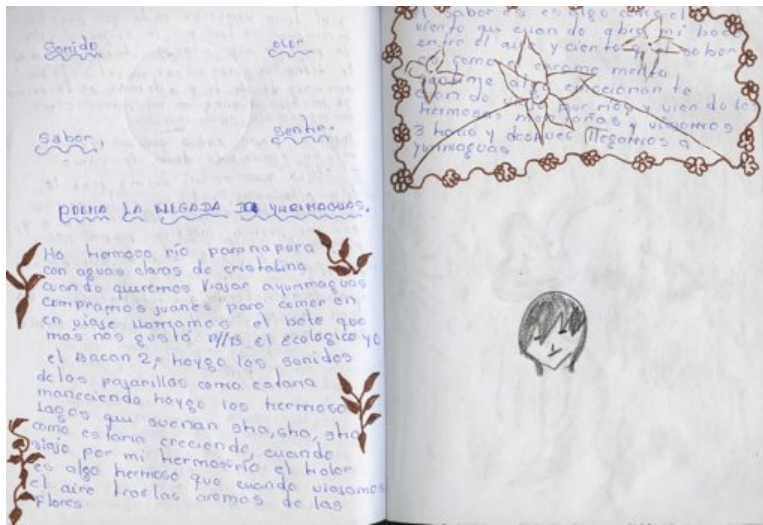 Sonido olor
Sabor, Sentir.
POEMA LA LLEGADA DE YURIMAGUAS.
Ho hermoso río paranapura
con aguas claras de cristalina
cuando queremos viajar ayurimaguas
compramos juanes para comer en
en viaje tomamos el bote que
mas nos gusta el ecológico yo
el Bacan 2, hoygo los sonidos
de los pajarillos como estana
maneciendo hoygo los hermoso
Lagos que suenan sha, sha, sha
como estaria creciendo, cuando
viajo por mi hermosirío el holor
es algo hermoso que cuando viajamos
el aire tras las aromas de las
Flores
el sabor es es algo como el
viento que cuan do abro mi boca
entre el aire y ciento el sabor
como el carame menta
algo emocionan te
cuan do viajo por ríos y vien do los
hermosas montañas y viajamos
3 horas y despues llegamos a
yurimaguas